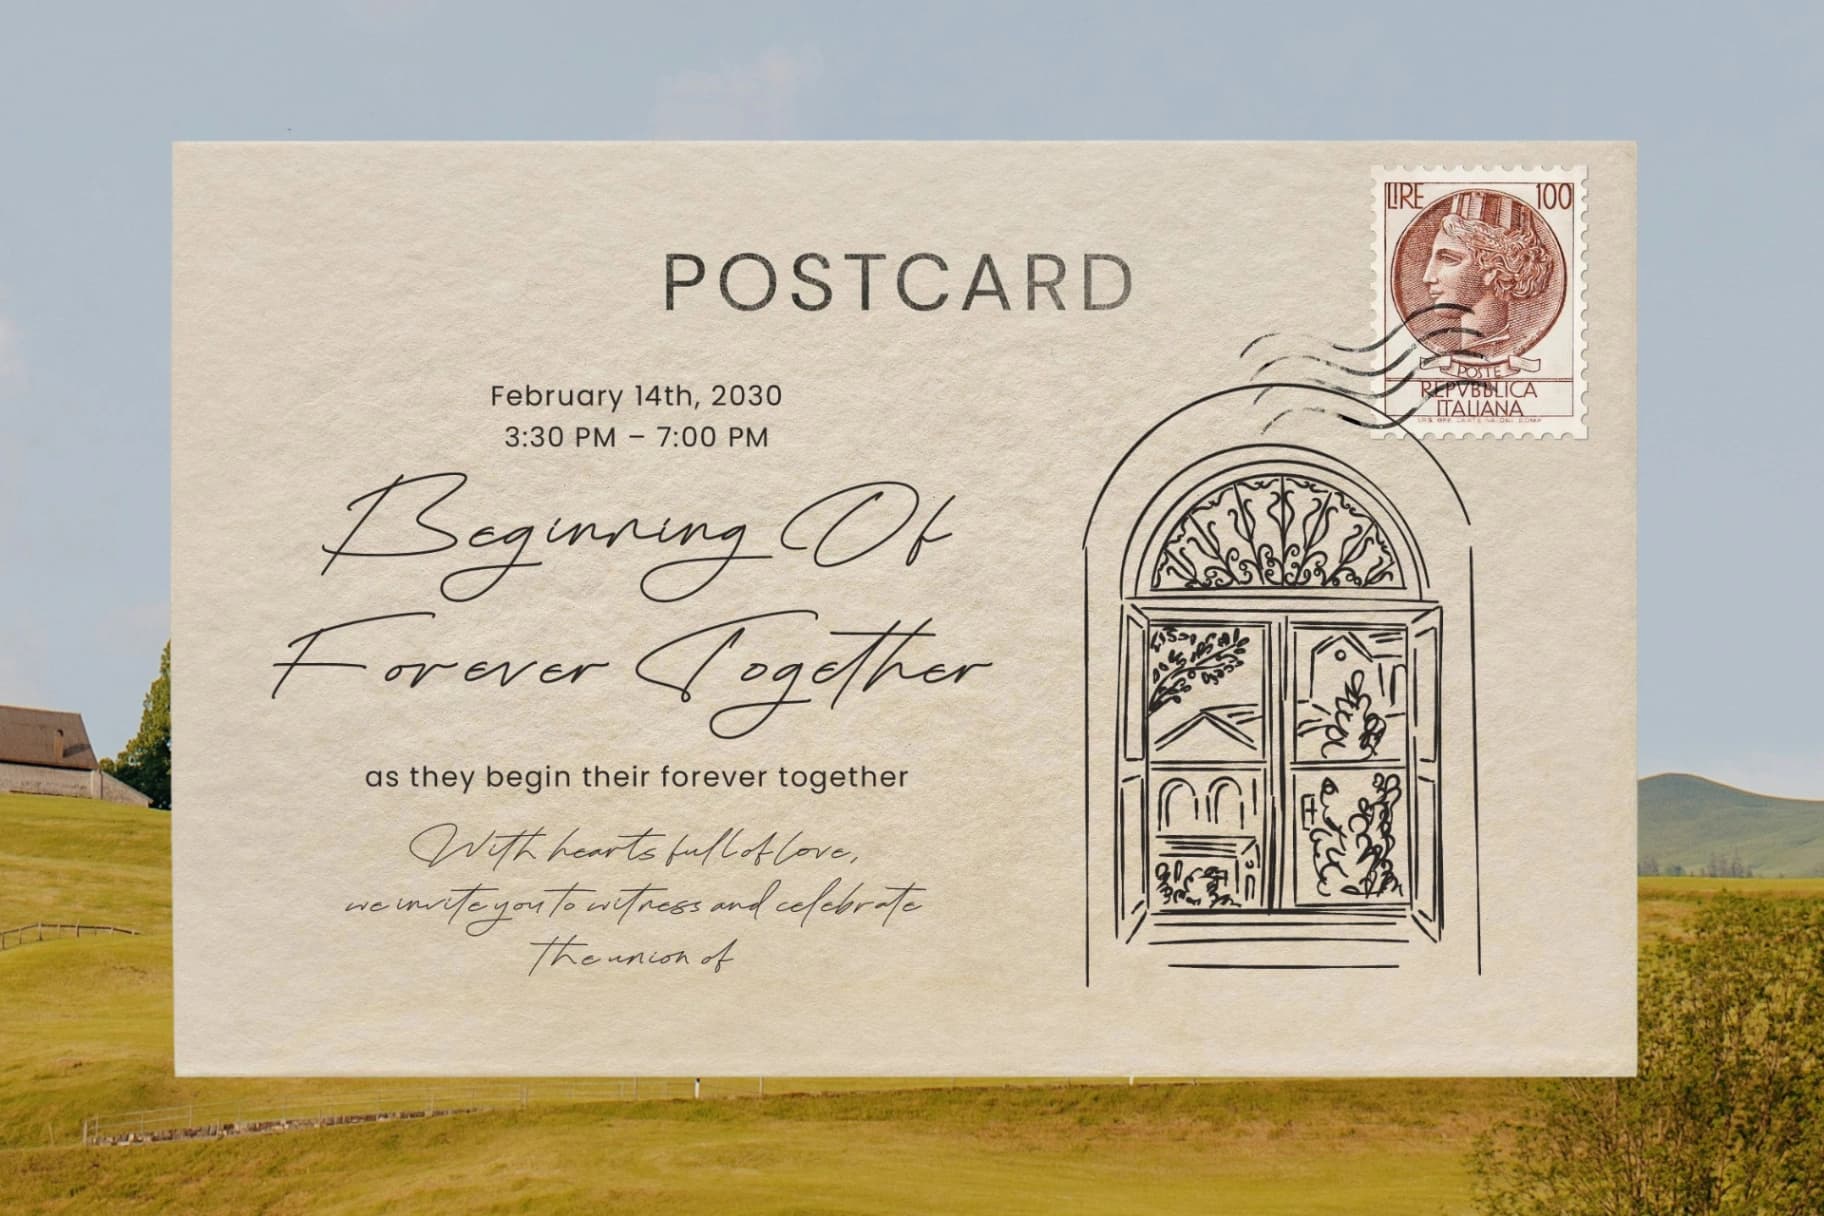 POSTCARD
LIRE 100
POSTE
REPVBBLICA
ITALIANA
February 14th, 2030
3:30 PM – 7:00 PM
Beginning Of
Forever Together
as they begin their forever together
With hearts full of love,
we invite you to witness and celebrate
the union of